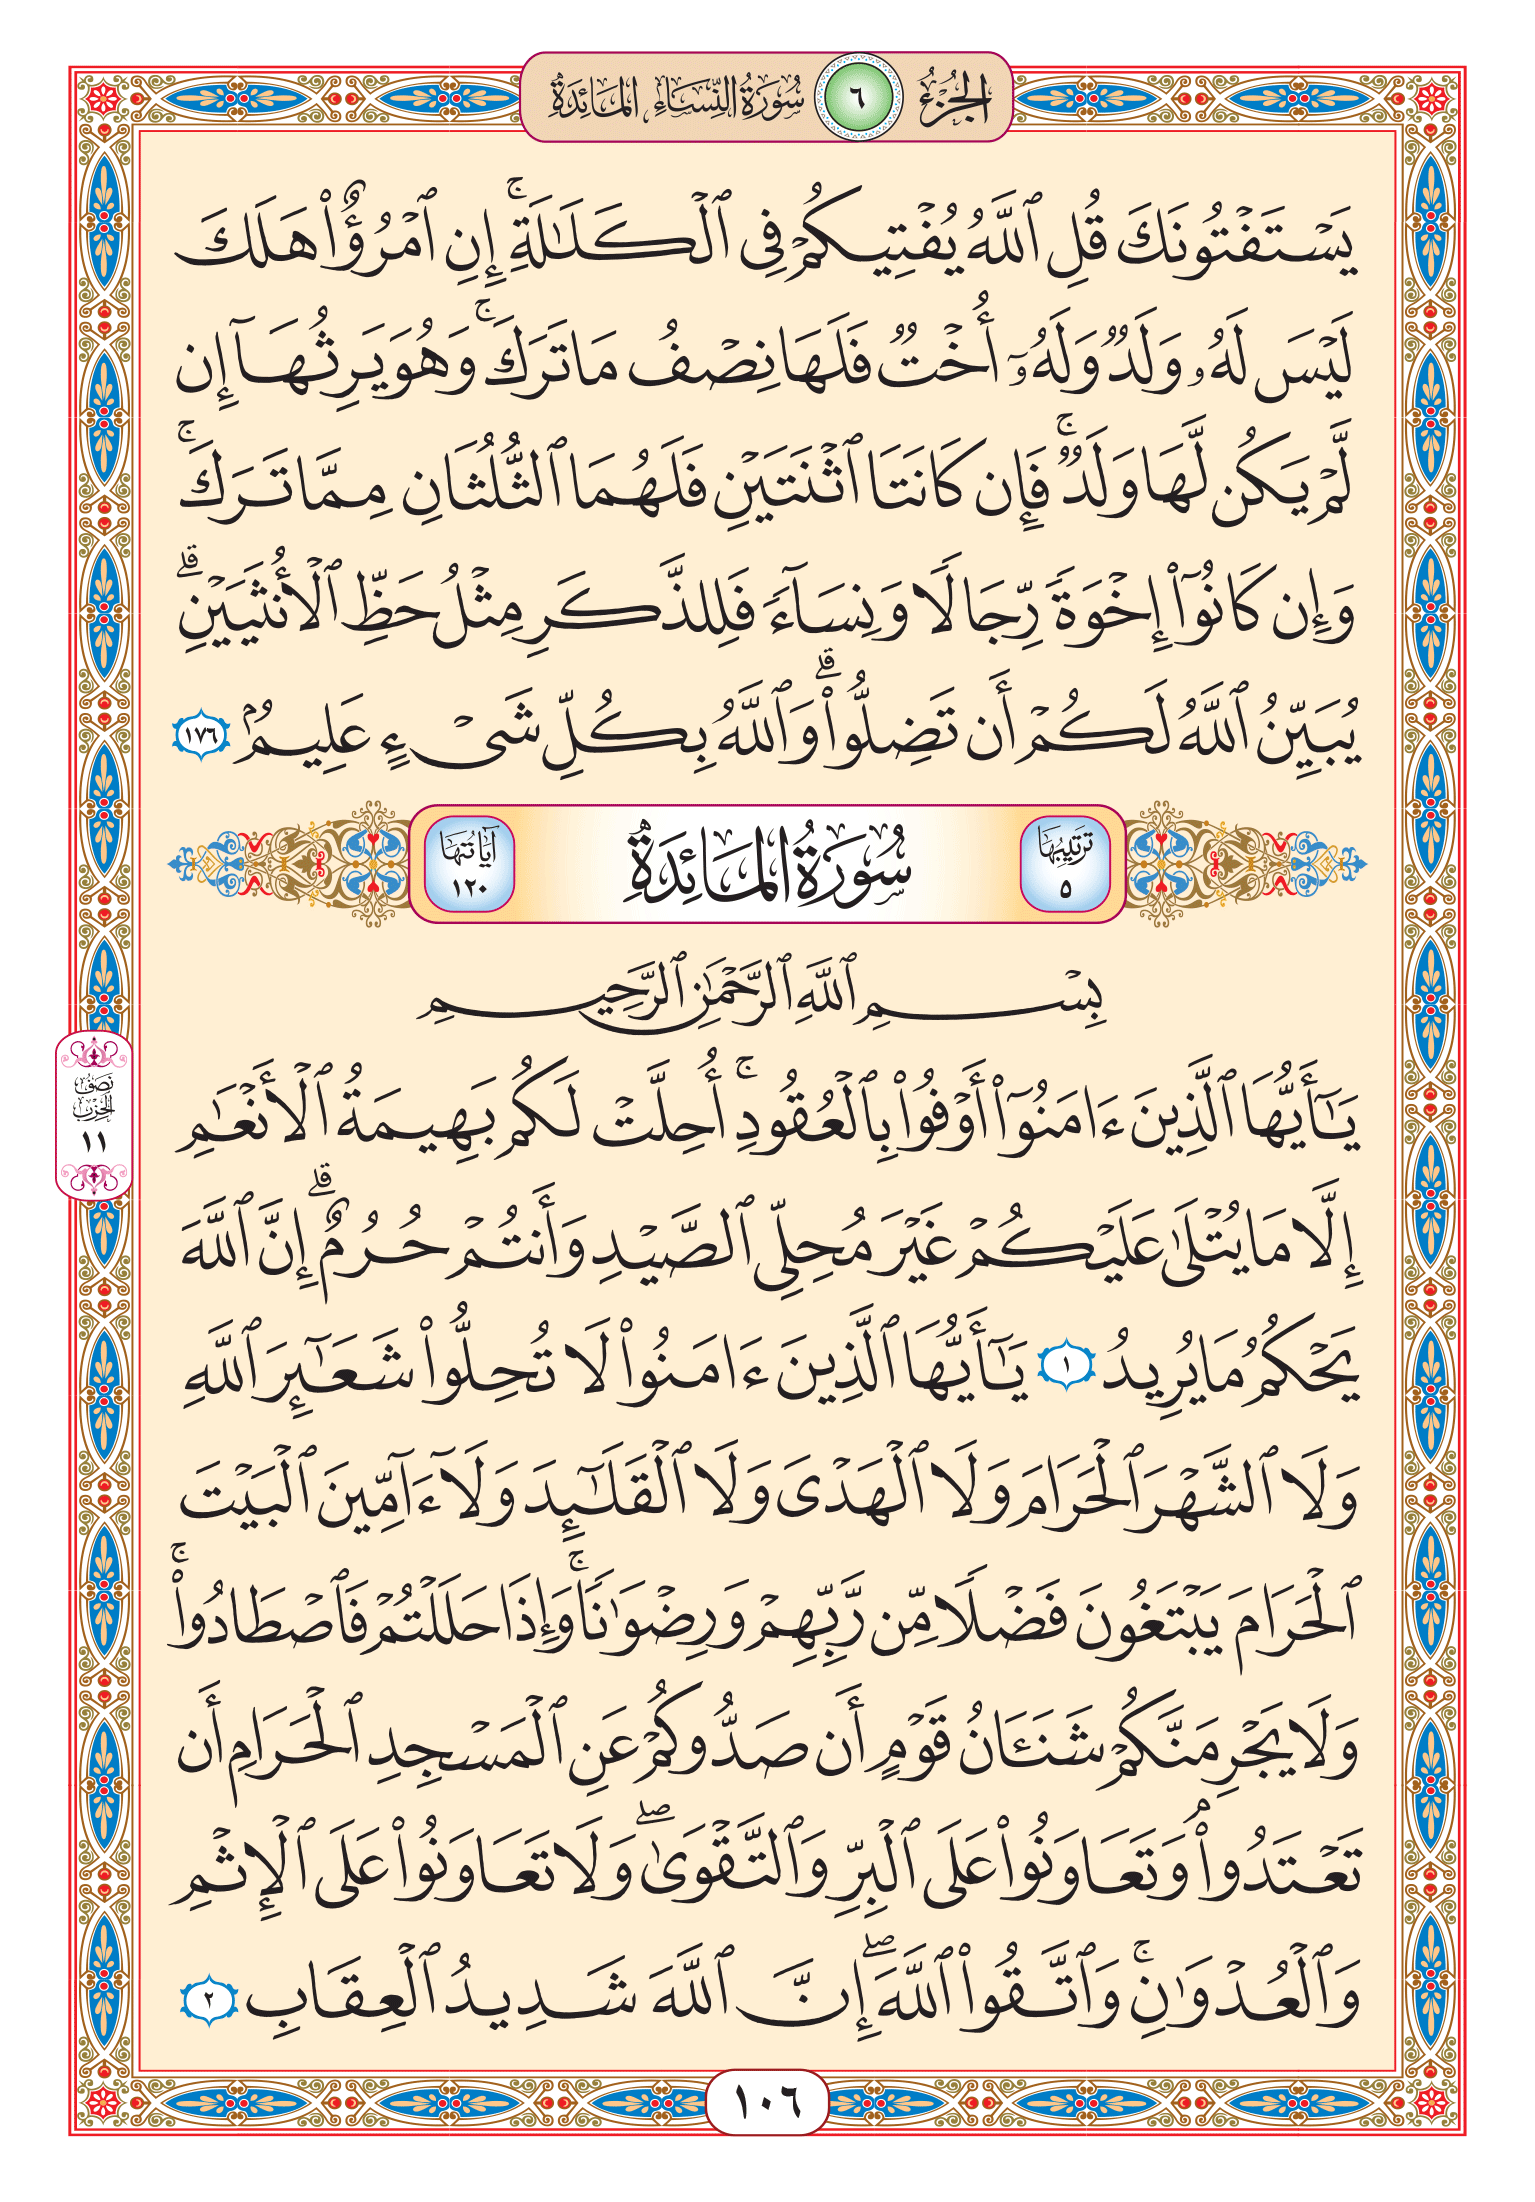 الجُزءُ ٦ سُورَةُ النِّسَاءِ المَائِدَةُ
يَسۡتَفۡتُونَكَ قُلِ ٱللَّهُ يُفۡتِيكُمۡ فِي ٱلۡكَلَٰلَةِۚ إِنِ ٱمۡرُؤٌاْ هَلَكَ
لَيۡسَ لَهُۥ وَلَدٞ وَلَهُۥٓ أُخۡتٞ فَلَهَا نِصۡفُ مَا تَرَكَۚ وَهُوَ يَرِثُهَآ إِن
لَّمۡ يَكُن لَّهَا وَلَدٞۚ فَإِن كَانَتَا ٱثۡنَتَيۡنِ فَلَهُمَا ٱلثُّلُثَانِ مِمَّا تَرَكَۚ
وَإِن كَانُوٓاْ إِخۡوَةٗ رِّجَالٗا وَنِسَآءٗ فَلِلذَّكَرِ مِثۡلُ حَظِّ ٱلۡأُنثَيَيۡنِۗ
يُبَيِّنُ ٱللَّهُ لَكُمۡ أَن تَضِلُّواْۗ وَٱللَّهُ بِكُلِّ شَيۡءٍ عَلِيمُۢ ١٧٦
تَرتِيبُهَا ٥ سُورَةُ المَائِدَةِ آيَاتُهَا ١٢٠
بِسۡمِ ٱللَّهِ ٱلرَّحۡمَٰنِ ٱلرَّحِيمِ
يَٰٓأَيُّهَا ٱلَّذِينَ ءَامَنُوٓاْ أَوۡفُواْ بِٱلۡعُقُودِۚ أُحِلَّتۡ لَكُم بَهِيمَةُ ٱلۡأَنۡعَٰمِ
إِلَّا مَا يُتۡلَىٰ عَلَيۡكُمۡ غَيۡرَ مُحِلِّي ٱلصَّيۡدِ وَأَنتُمۡ حُرُمٌۗ إِنَّ ٱللَّهَ
يَحۡكُمُ مَا يُرِيدُ ١ يَٰٓأَيُّهَا ٱلَّذِينَ ءَامَنُواْ لَا تُحِلُّواْ شَعَٰٓئِرَ ٱللَّهِ
وَلَا ٱلشَّهۡرَ ٱلۡحَرَامَ وَلَا ٱلۡهَدۡيَ وَلَا ٱلۡقَلَٰٓئِدَ وَلَآ ءَآمِّينَ ٱلۡبَيۡتَ
ٱلۡحَرَامَ يَبۡتَغُونَ فَضۡلٗا مِّن رَّبِّهِمۡ وَرِضۡوَٰنٗاۚ وَإِذَا حَلَلۡتُمۡ فَٱصۡطَادُواْۚ
وَلَا يَجۡرِمَنَّكُمۡ شَنَـَٔانُ قَوۡمٍ أَن صَدُّوكُمۡ عَنِ ٱلۡمَسۡجِدِ ٱلۡحَرَامِ أَن
تَعۡتَدُواْۘ وَتَعَاوَنُواْ عَلَى ٱلۡبِرِّ وَٱلتَّقۡوَىٰۖ وَلَا تَعَاوَنُواْ عَلَى ٱلۡإِثۡمِ
وَٱلۡعُدۡوَٰنِۚ وَٱتَّقُواْ ٱللَّهَۖ إِنَّ ٱللَّهَ شَدِيدُ ٱلۡعِقَابِ ٢
نِصۡفُ
الحِزۡبِ
١١
١٠٦